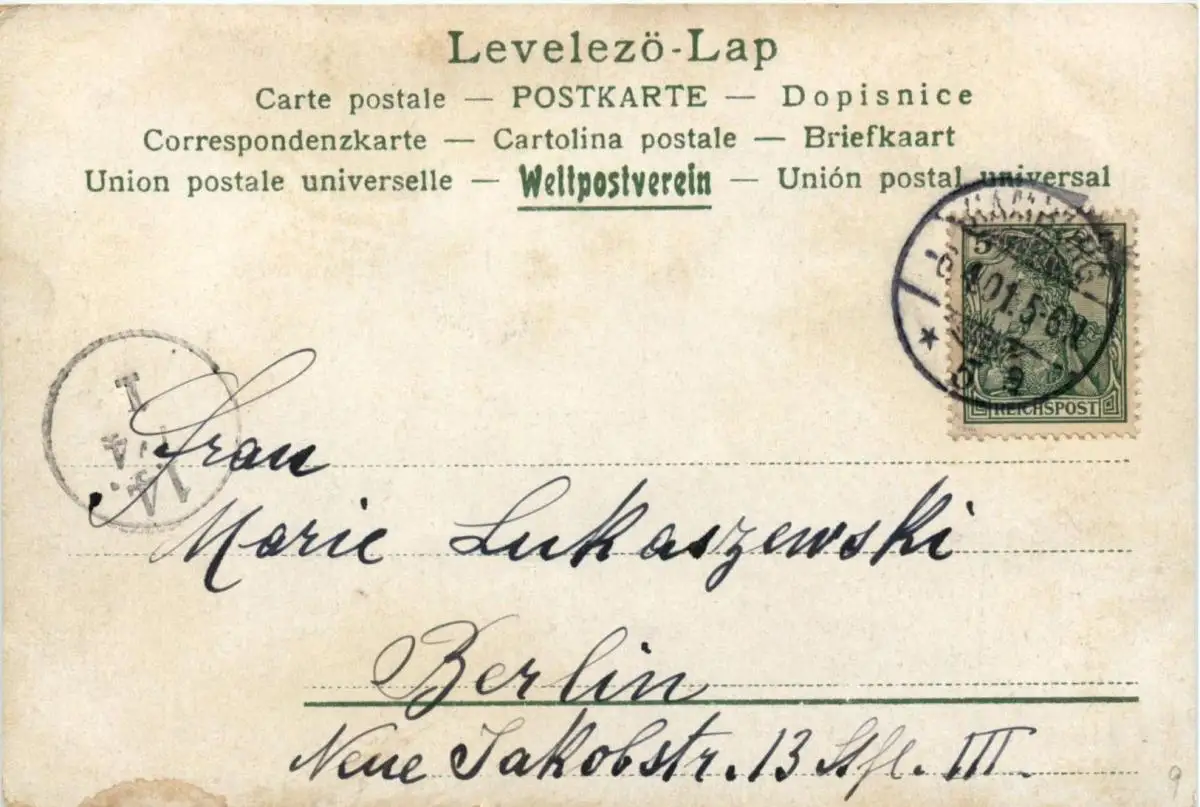 Levelezö-Lap
Carte postale — POSTKARTE — Dopisnice
Correspondenzkarte — Cartolina postale — Briefkaart
Union postale universelle — Weltpostverein — Unión postal universal
HAMBURG
1.01.5-6N
* 5 a
5 5
REICHSPOST
1
1A.
Frau
Marie Lukaszewski
Berlin
Neue Jakobstr. 13 Stfl. III.
9